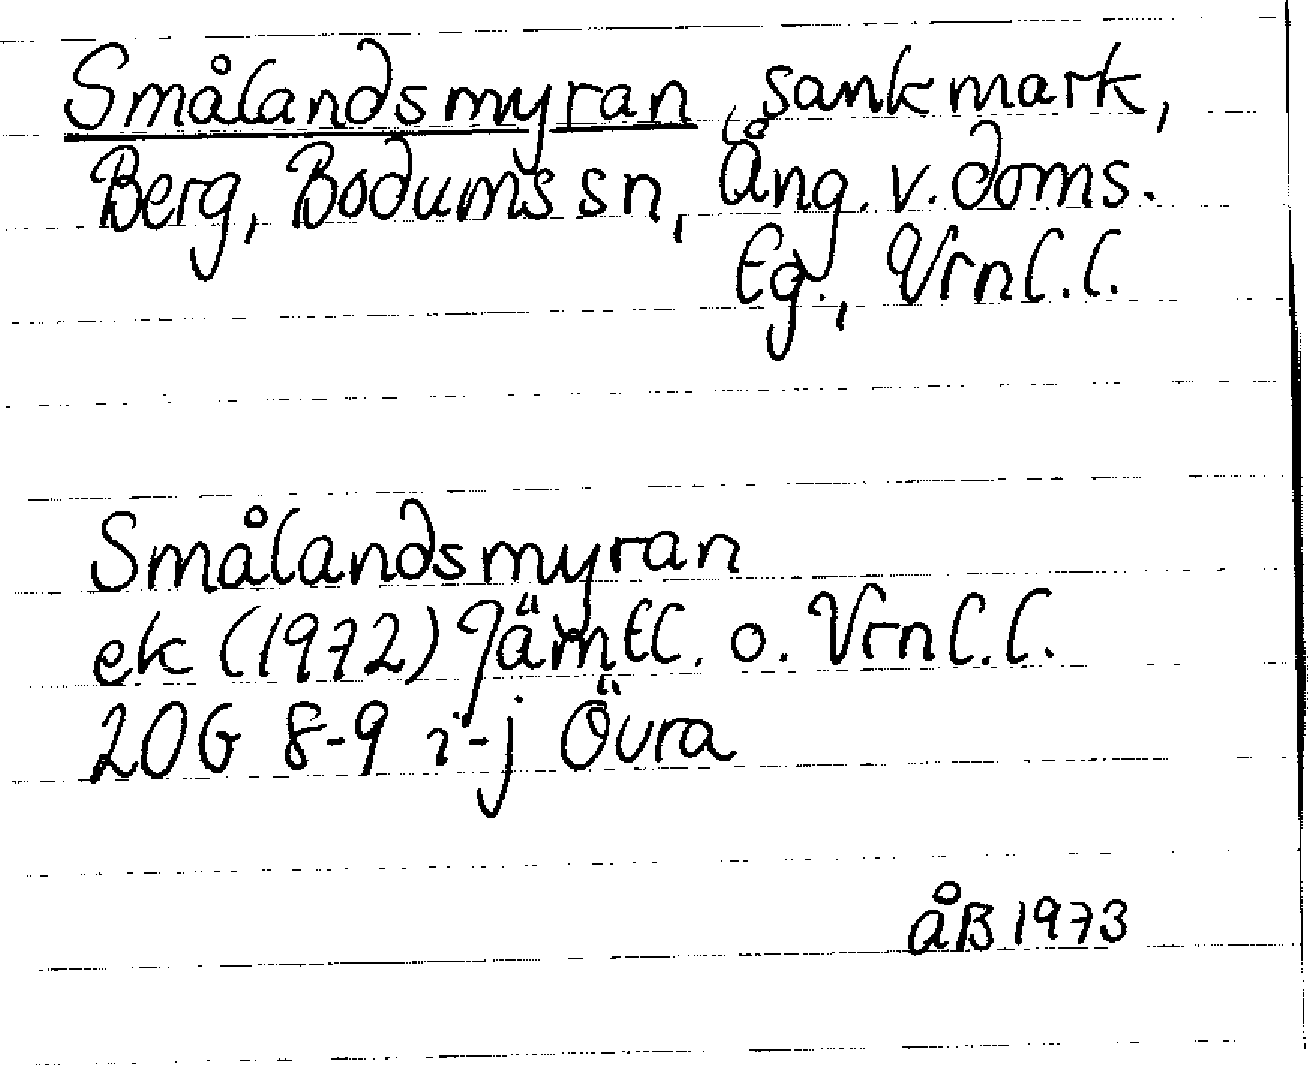 Smålandsmyran, sankmark,
Berg, Bodums sn, Ång. v. doms.
Eg., Vrnl.l.
Smålandsmyran
ek (1972) Jämtl. o. Vrnl.l.
20G 8-9 i-j Övra
åB 1973